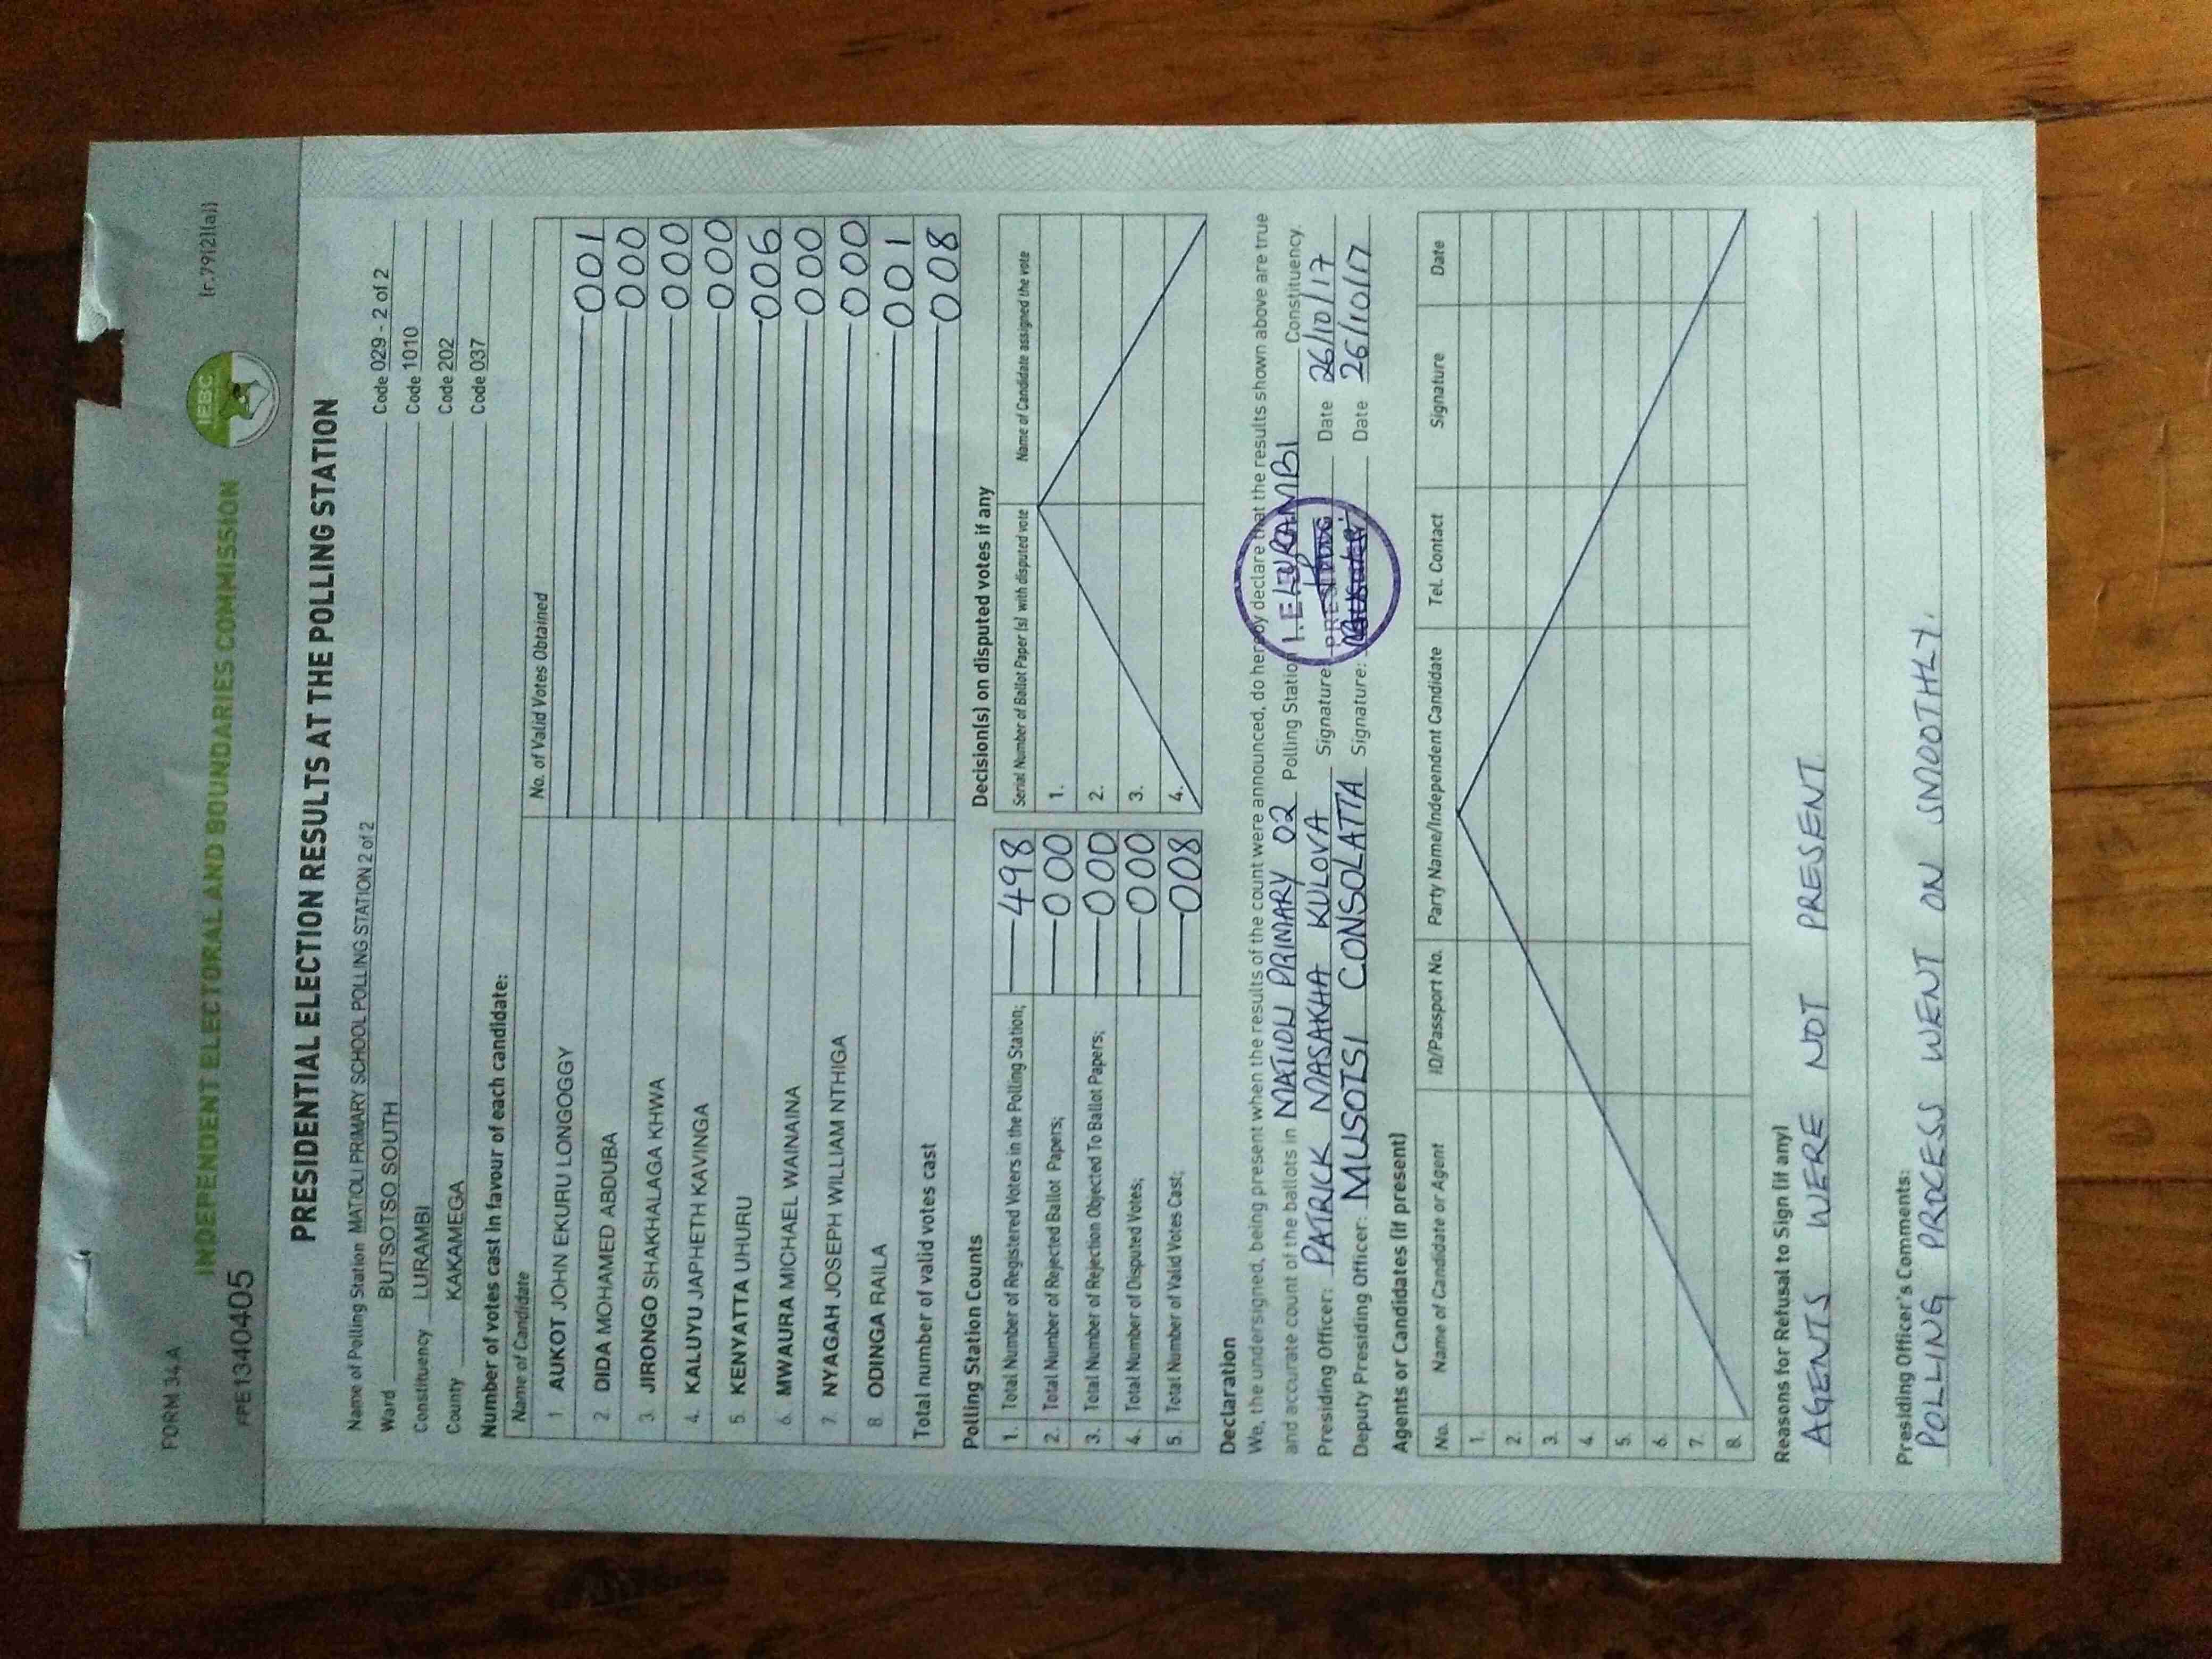 FORM 34A
(r.79(2)(a))
INDEPENDENT ELECTORAL AND BOUNDARIES COMMISSION
IEBC
PE1340405
PRESIDENTIAL ELECTION RESULTS AT THE POLLING STATION
Name of Polling Station MATIOLI PRIMARY SCHOOL POLLING STATION 2 of 2 Code 029 - 2 of 2
Ward BUTSOTSO SOUTH Code 1010
Constituency LURAMBI Code 202
County KAKAMEGA Code 037
Number of votes cast in favour of each candidate:
Name of Candidate No. of Valid Votes Obtained
1 AUKOT JOHN EKURU LONGOGGY 001
2 DIDA MOHAMED ABDUBA 000
3. JIRONGO SHAKHALAGA KHWA 000
4. KALUYU JAPHETH KAVINGA 000
5. KENYATTA UHURU 006
6. MWAURA MICHAEL WAINAINA 000
7. NYAGAH JOSEPH WILLIAM NTHIGA 000
8. ODINGA RAILA 001
Total number of valid votes cast 008
Polling Station Counts
1. Total Number of Registered Voters in the Polling Station; 498
2. Total Number of Rejected Ballot Papers; 000
3. Total Number of Rejection Objected To Ballot Papers; 000
4. Total Number of Disputed Votes; 000
5. Total Number of Valid Votes Cast; 008
Decision(s) on disputed votes if any
Serial Number of Ballot Paper (s) with disputed vote Name of Candidate assigned the vote
1.
2.
3.
4.
Declaration
We, the undersigned, being present when the results of the count were announced, do hereby declare that the results shown above are true
and accurate count of the ballots in MATIOLI PRIMARY 02 Polling Station LURAMBI Constituency.
Presiding Officer: PATRICK MASAKHA KULOVA Signature: Date 26/10/17
Deputy Presiding Officer: MUSOTSI CONSOLATTA Signature: Date 26/10/17
Agents or Candidates (if present)
No. Name of Candidate or Agent ID/Passport No. Party Name/Independent Candidate Tel. Contact Signature Date
1.
2.
3.
4.
5.
6.
7.
8.
Reasons for Refusal to Sign (if any)
AGENTS WERE NOT PRESENT
Presiding Officer's Comments:
POLLING PROCESS WENT ON SMOOTHLY.